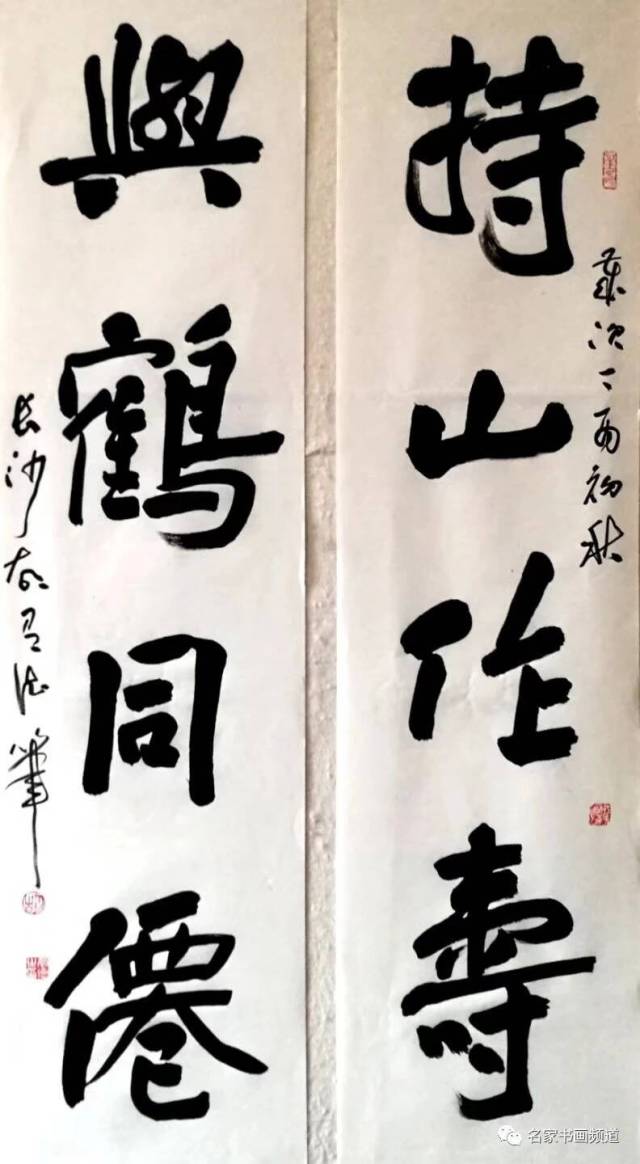 持山作壽
歲次丁酉初秋
與鶴同僊
长沙
名家书画频道